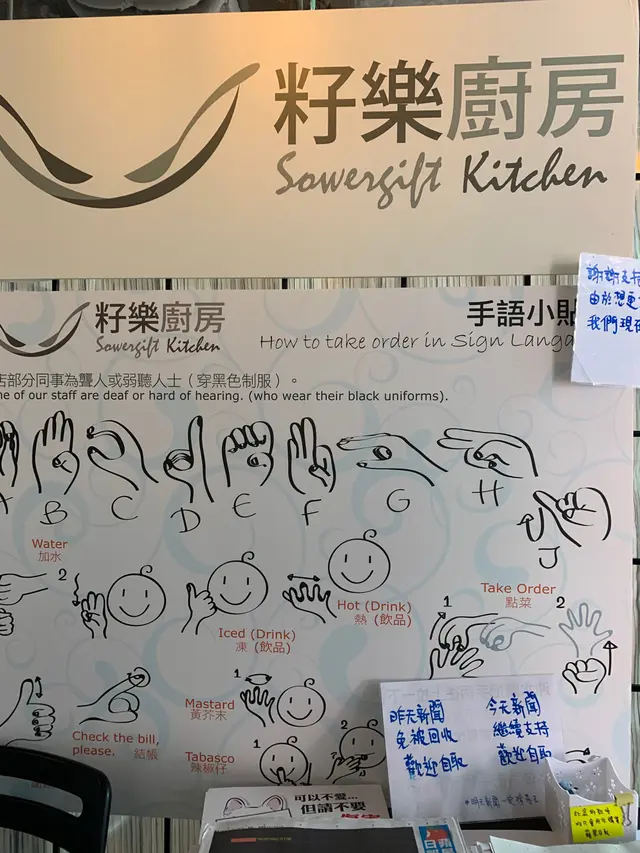 籽樂廚房
Sowergift Kitchen
謝謝支持
由於想更
我們現在
籽樂廚房
Sowergift Kitchen
手語小貼
How to take order in Sign Langa
店部分同事為聾人或弱聽人士（穿黑色制服）。
ne of our staff are deaf or hard of hearing. (who wear their black uniforms).
A B C D E F G H J
Water
加水
2
Iced (Drink)
凍 (飲品)
Hot (Drink)
熱 (飲品)
Take Order
點菜
1 2
Check the bill,
please. 結帳
Mustard
黃芥末
1
Tabasco
辣椒仔
1 2
昨天新聞
免被回收
歡迎自取
今天新聞
繼續支持
歡迎自取
可以不愛...
但請不要